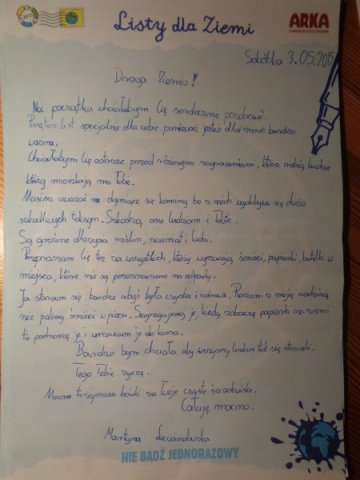 Listy dla Ziemi
ARKA
Sokółka 3.05.2015
Droga Ziemio!
Na początku chciałabym Cię serdecznie pozdrowić.
Piszę ten list specjalnie dla ciebie ponieważ jesteś dla mnie bardzo
ważna.
Chciałabym Cię ostrzec przed różnymi zagrożeniami, które robią ludzie
którzy mieszkają na Tobie.
Musisz uważać na dymiące się kominy bo z nich wydobywa się dużo
szkodliwych toksyn. Szkodzą one ludziom i Tobie.
Są groźne dla roślin, zwierząt i ludzi.
Przepraszam Cię też za wszystkich, którzy wyrzucają śmieci, papierki butelki w
miejsca, które nie są przeznaczone na odpady.
Ja staram się bardzo abyś była czysta i zdrowa. Razem z moją rodziną
nie palimy śmieci w piecu. Segregujemy je, kiedy zobaczę papierki na ziemi
to podnoszę je i wrzucam je do kosza.
Bardzo bym chciała aby wszyscy ludzie tak się starali.
Tego Tobie życzę.
Mocno trzymam kciuki za Twoje czyste środowisko.
Całuję mocno.
Martyna
NIE BĄDŹ JEDNORAZOWY